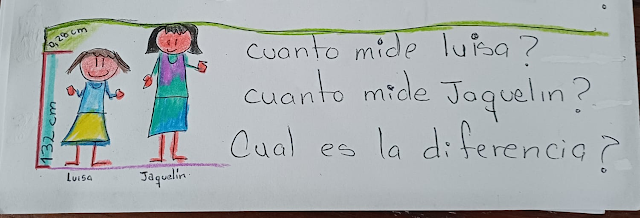 0,28 cm
132 cm
Luisa
Jaquelín
cuanto mide luisa?
cuanto mide Jaquelin?
Cual es la diferencia?